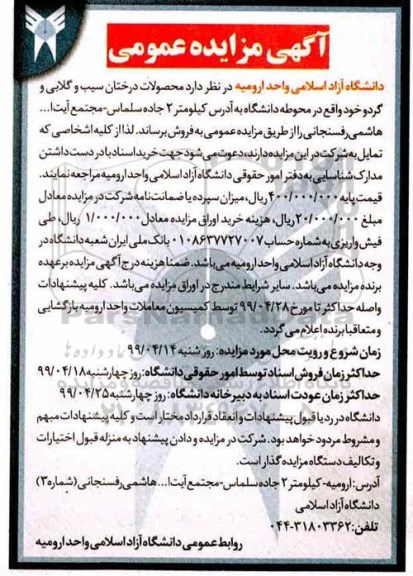 آگهی مزایده عمومی
دانشگاه آزاد اسلامی واحد ارومیه در نظر دارد محصولات درختان سیب و گلابی و
گردو خود واقع در محوطه دانشگاه به آدرس کیلومتر ۲ جاده سلماس-مجتمع آیت ا...
هاشمی رفسنجانی را از طریق مزایده عمومی به فروش برساند. لذا از کلیه اشخاصی که
تمایل به شرکت در این مزایده دارند، دعوت می شود جهت خرید اسناد با در دست داشتن
مدارک شناسایی به دفتر امور حقوقی دانشگاه آزاد اسلامی واحد ارومیه مراجعه نمایند.
قیمت پایه ۴۰۰/۰۰۰/۰۰۰ ریال، میزان سپرده یا ضمانت نامه شرکت در مزایده معادل
مبلغ ۲۰/۰۰۰/۰۰۰ ریال، هزینه خرید اوراق مزایده معادل ۱/۰۰۰/۰۰۰ ریال، طی
فیش واریزی به شماره حساب ۰۱۰۸۶۳۷۷۲۷۰۰۷ بانک ملی ایران شعبه دانشگاه در
وجه دانشگاه آزاد اسلامی واحد ارومیه می باشد. ضمنا هزینه درج آگهی مزایده بر عهده
برنده مزایده می باشد. سایر شرایط مندرج در اوراق مزایده می باشد. کلیه پیشنهادات
واصله حداکثر تا مورخ ۹۹/۰۴/۲۸ توسط کمیسیون معاملات واحد ارومیه بازگشایی
و متعاقبا برنده اعلام می گردد.
زمان شروع و رویت محل مورد مزایده: روز شنبه ۹۹/۰۴/۱۴
حداکثر زمان فروش اسناد توسط امور حقوقی دانشگاه: روز چهارشنبه ۹۹/۰۴/۱۸
حداکثر زمان عودت اسناد به دبیرخانه دانشگاه: روز چهارشنبه ۹۹/۰۴/۲۵
دانشگاه در رد یا قبول پیشنهادات و انعقاد قرارداد مختار است و کلیه پیشنهادات مبهم
و مشروط مردود خواهد بود. شرکت در مزایده و دادن پیشنهاد به منزله قبول اختیارات
و تکالیف دستگاه مزایده گذار است.
آدرس: ارومیه- کیلومتر ۲ جاده سلماس-مجتمع آیت ا... هاشمی رفسنجانی (شماره ۳)
دانشگاه آزاد اسلامی
تلفن: ۳۱۸۰۳۳۶۲-۰۴۴
روابط عمومی دانشگاه آزاد اسلامی واحد ارومیه